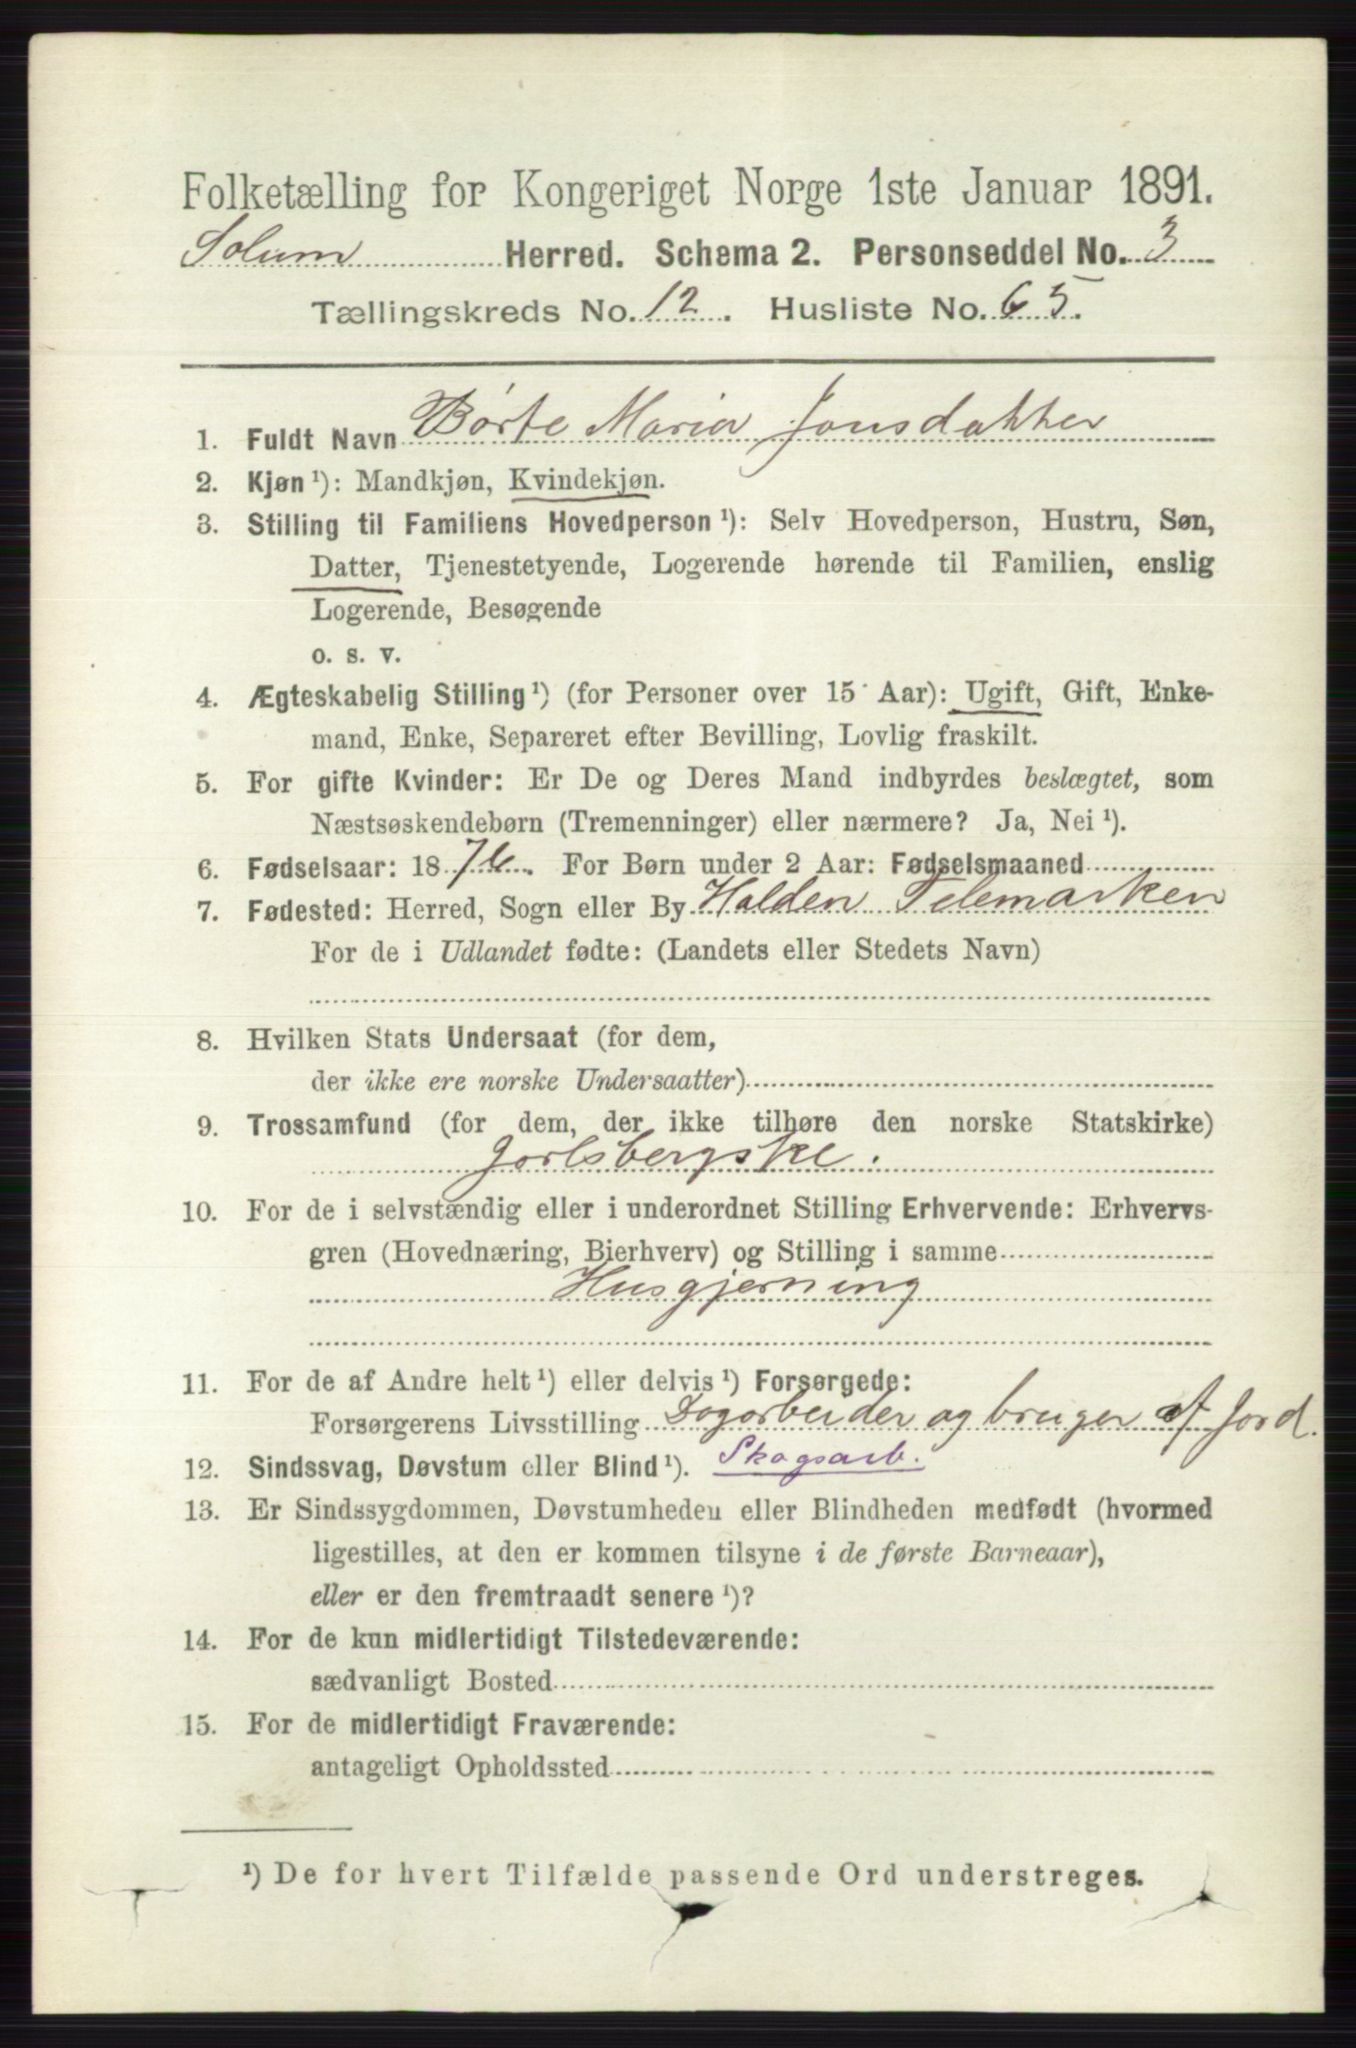 Folketælling for Kongeriget Norge 1ste Januar 1891.
Solum Herred. Schema 2. Personseddel No. 3
Tællingskreds No. 12. Husliste No. 65.
1. Fuldt Navn Børte Maria Jonsdatter
2. Kjøn ¹): Mandkjøn, Kvindekjøn.
3. Stilling til Familiens Hovedperson ¹): Selv Hovedperson, Hustru, Søn,
Datter, Tjenestetyende, Logerende hørende til Familien, enslig
Logerende, Besøgende
o. s. v.
4. Ægteskabelig Stilling ¹) (for Personer over 15 Aar): Ugift, Gift, Enke-
mand, Enke, Separeret efter Bevilling, Lovlig fraskilt.
5. For gifte Kvinder: Er De og Deres Mand indbyrdes beslægtet, som
Næstsøskendebørn (Tremenninger) eller nærmere? Ja, Nei ¹).
6. Fødselsaar: 1876. For Børn under 2 Aar: Fødselsmaaned
7. Fødested: Herred, Sogn eller By Holden Telemarken
For de i Udlandet fødte: (Landets eller Stedets Navn)
8. Hvilken Stats Undersaat (for dem,
der ikke ere norske Undersaatter)
9. Trossamfund (for dem, der ikke tilhøre den norske Statskirke)
Jorlsbergske.
10. For de i selvstændig eller i underordnet Stilling Erhvervende: Erhvervs-
gren (Hovednæring, Bierhverv) og Stilling i samme
Husgjerning
11. For de af Andre helt ¹) eller delvis ¹) Forsørgede:
Forsørgerens Livsstilling Dagarbeider og bruger af Jord.
12. Sindssvag, Døvstum eller Blind ¹). Skogsarb.
13. Er Sindssygdommen, Døvstumheden eller Blindheden medfødt (hvormed
ligestilles, at den er kommen tilsyne i de første Barneaar),
eller er den fremtraadt senere ¹)?
14. For de kun midlertidigt Tilstedeværende:
sædvanligt Bosted
15. For de midlertidigt Fraværende:
antageligt Opholdssted
¹) De for hvert Tilfælde passende Ord understreges.